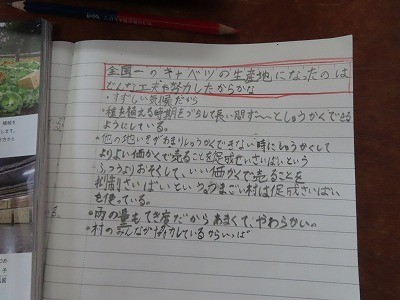 全国一のキャベツの生産地になったのは
どんな工夫や努力したからかな
・すずしい気候だから
・種を植える時期をづらして長い間ず〜〜としゅうかくできる
ようにしている。
・他の地いきがあまりしゅうかくできない時にしゅうかくして
よりよい価かくで売ることを促成さいばいという
・ふつうよりおそくして、いい価かくで売ることを
抑制さいばいという つまごい村は促成さいばい
を使っている。
・雨の量もてき度だからあまくて、やわらかい。
・村のみんなが協力しているからいっぱ